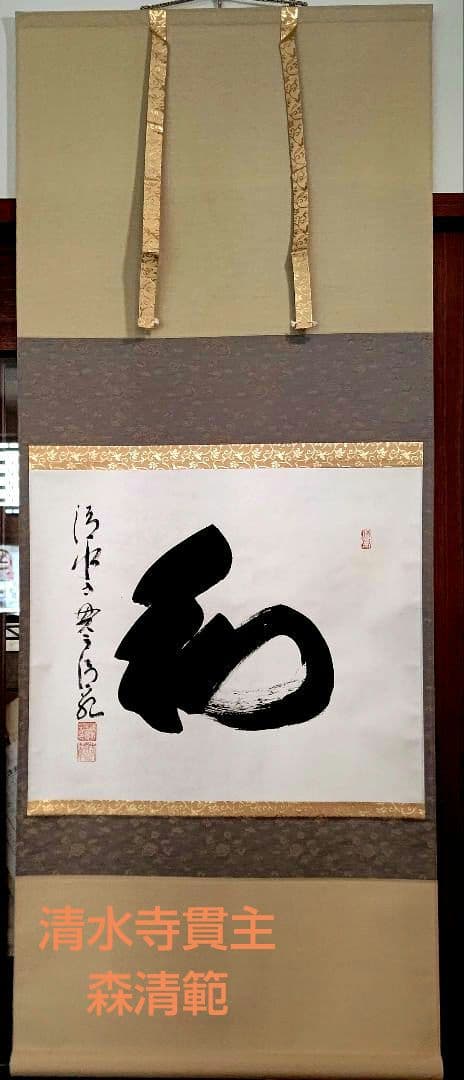 和
清水寺貫主清範
清水寺貫主
森清範